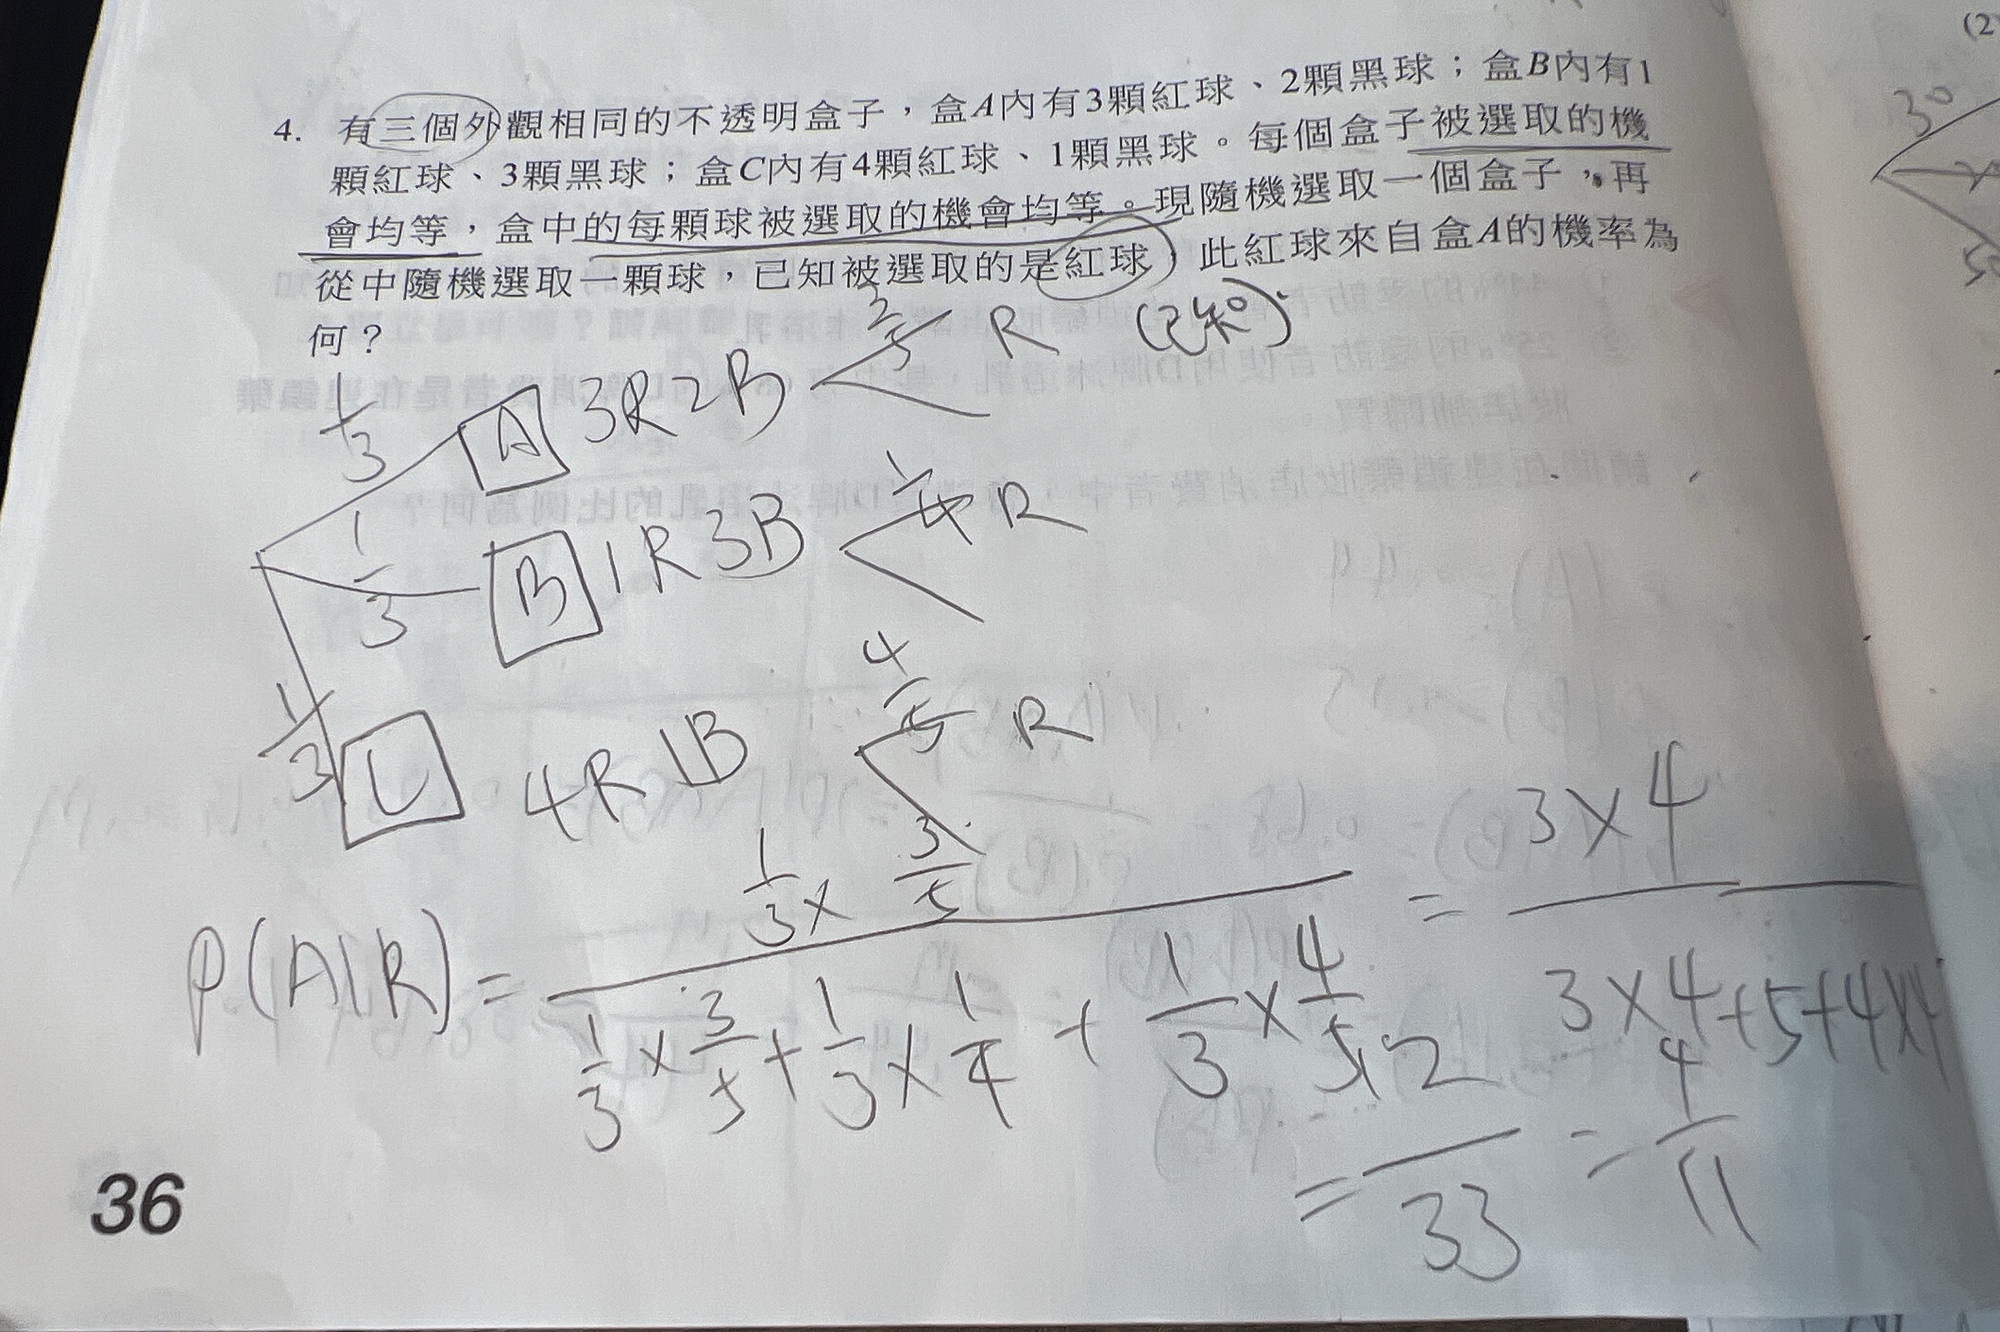 4. 有三個外觀相同的不透明盒子，盒A內有3顆紅球、2顆黑球；盒B內有1
顆紅球、3顆黑球；盒C內有4顆紅球、1顆黑球。每個盒子被選取的機
會均等，盒中的每顆球被選取的機會均等。現隨機選取一個盒子，再
從中隨機選取一顆球，已知被選取的是紅球，此紅球來自盒A的機率為
何？
1/3 A 3R2B 3/5 R (已知)
1/3 B 1R3B 1/4 R
1/3 C 4R1B 4/5 R
P(A|R) = (1/3 × 3/5) / (1/3 × 3/5 + 1/3 × 1/4 + 1/3 × 4/5) = (3×4) / (3×4+5+4×4)
= 12/33 = 4/11
36
(2
30
50